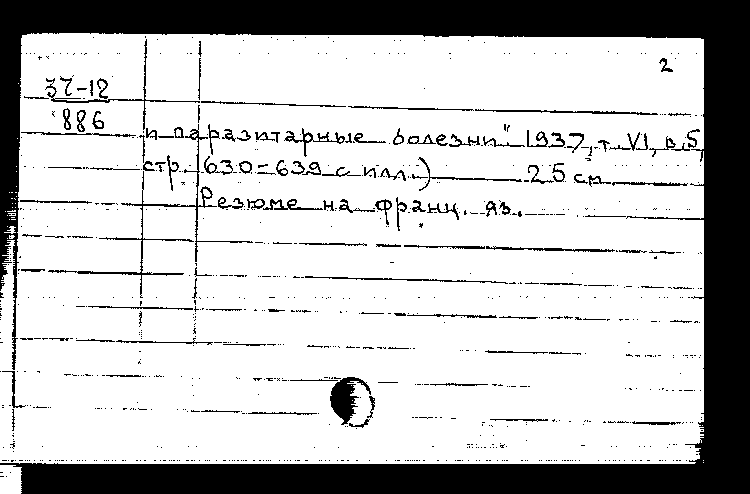 2
37-12
886
и паразитарные болезни" 1937, т. VI, в. 5,
стр. 630-639 с илл.) 25 см
Резюме на франц. яз.